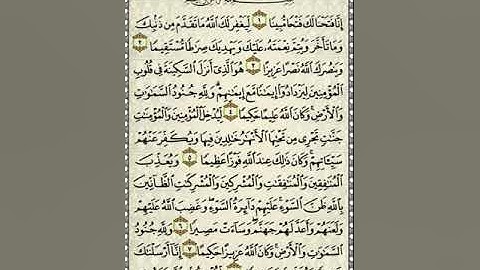 إِنَّا فَتَحْنَا لَكَ فَتْحًا مُّبِينًا ١ لِّيَغْفِرَ لَكَ ٱللَّهُ مَا تَقَدَّمَ مِن ذَنۢبِكَ
وَمَا تَأَخَّرَ وَيُتِمَّ نِعْمَتَهُۥ عَلَيْكَ وَيَهْدِيَكَ صِرَٰطًا مُّسْتَقِيمًا ٢
وَيَنصُرَكَ ٱللَّهُ نَصْرًا عَزِيزًا ٣ هُوَ ٱلَّذِىٓ أَنزَلَ ٱلسَّكِينَةَ فِى قُلُوبِ
ٱلْمُؤْمِنِينَ لِيَزْدَادُوٓا۟ إِيمَٰنًا مَّعَ إِيمَٰنِهِمْ ۗ وَلِلَّهِ جُنُودُ ٱلسَّمَٰوَٰتِ
وَٱلْأَرْضِ ۚ وَكَانَ ٱللَّهُ عَلِيمًا حَكِيمًا ٤ لِّيُدْخِلَ ٱلْمُؤْمِنِينَ وَٱلْمُؤْمِنَٰتِ
جَنَّٰتٍ تَجْرِى مِن تَحْتِهَا ٱلْأَنْهَٰرُ خَٰلِدِينَ فِيهَا وَيُكَفِّرَ عَنْهُمْ
سَيِّـَٔاتِهِمْ ۚ وَكَانَ ذَٰلِكَ عِندَ ٱللَّهِ فَوْزًا عَظِيمًا ٥ وَيُعَذِّبَ
ٱلْمُنَٰفِقِينَ وَٱلْمُنَٰفِقَٰتِ وَٱلْمُشْرِكِينَ وَٱلْمُشْرِكَٰتِ ٱلظَّآنِّينَ
بِٱللَّهِ ظَنَّ ٱلسَّوْءِ ۚ عَلَيْهِمْ دَآئِرَةُ ٱلسَّوْءِ ۖ وَغَضِبَ ٱللَّهُ عَلَيْهِمْ
وَلَعَنَهُمْ وَأَعَدَّ لَهُمْ جَهَنَّمَ ۖ وَسَآءَتْ مَصِيرًا ٦ وَلِلَّهِ جُنُودُ
ٱلسَّمَٰوَٰتِ وَٱلْأَرْضِ ۚ وَكَانَ ٱللَّهُ عَزِيزًا حَكِيمًا ٧ إِنَّآ أَرْسَلْنَٰكَ